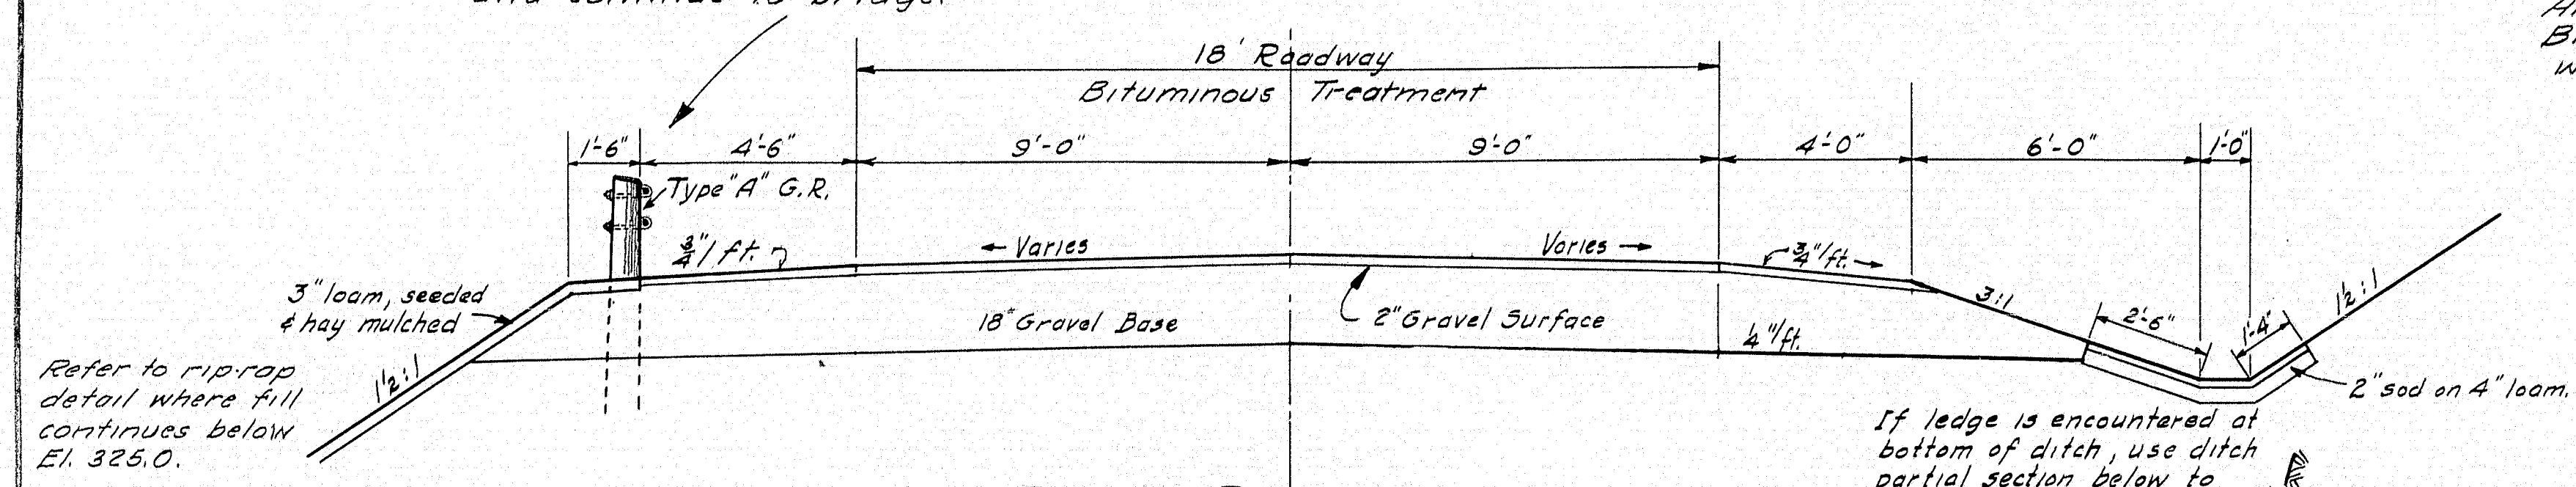 and continue to bridge.
18' Roadway
Bituminous Treatment
1'-6"
4'-6"
9'-0"
9'-0"
4'-0"
6'-0"
1'-0"
Type "A" G.R.
3/4"/ft.
← Varies
Varies →
3/4"/ft. →
3" loam, seeded
& hay mulched
1½:1
18" Gravel Base
2" Gravel Surface
1/4"/ft.
3:1
2'-6"
1'-4"
1½:1
2" sod on 4" loam.
Refer to rip-rap
detail where fill
continues below
El. 325.0.
If ledge is encountered at
bottom of ditch, use ditch
partial section below to